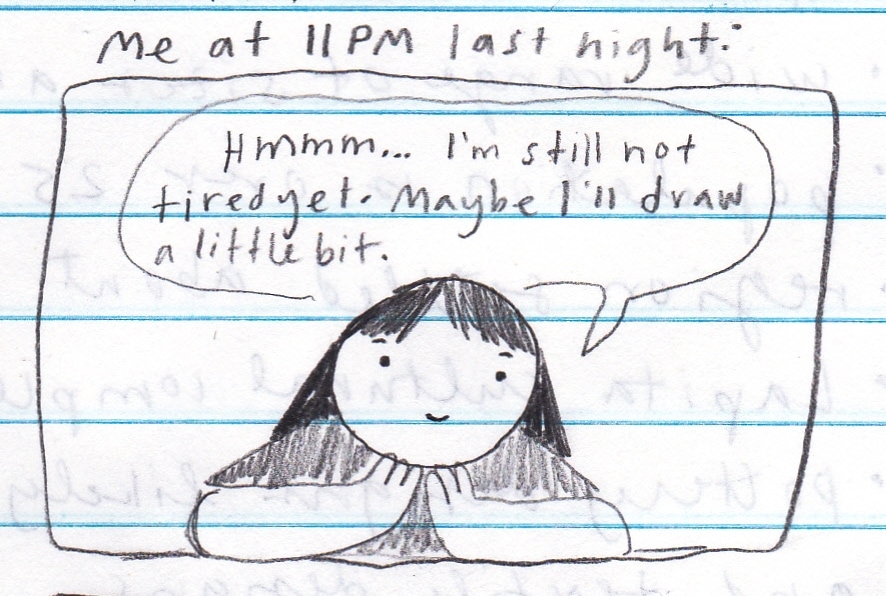 Me at 11PM last night:
Hmmm... I'm still not
tired yet. Maybe I'll draw
a little bit.